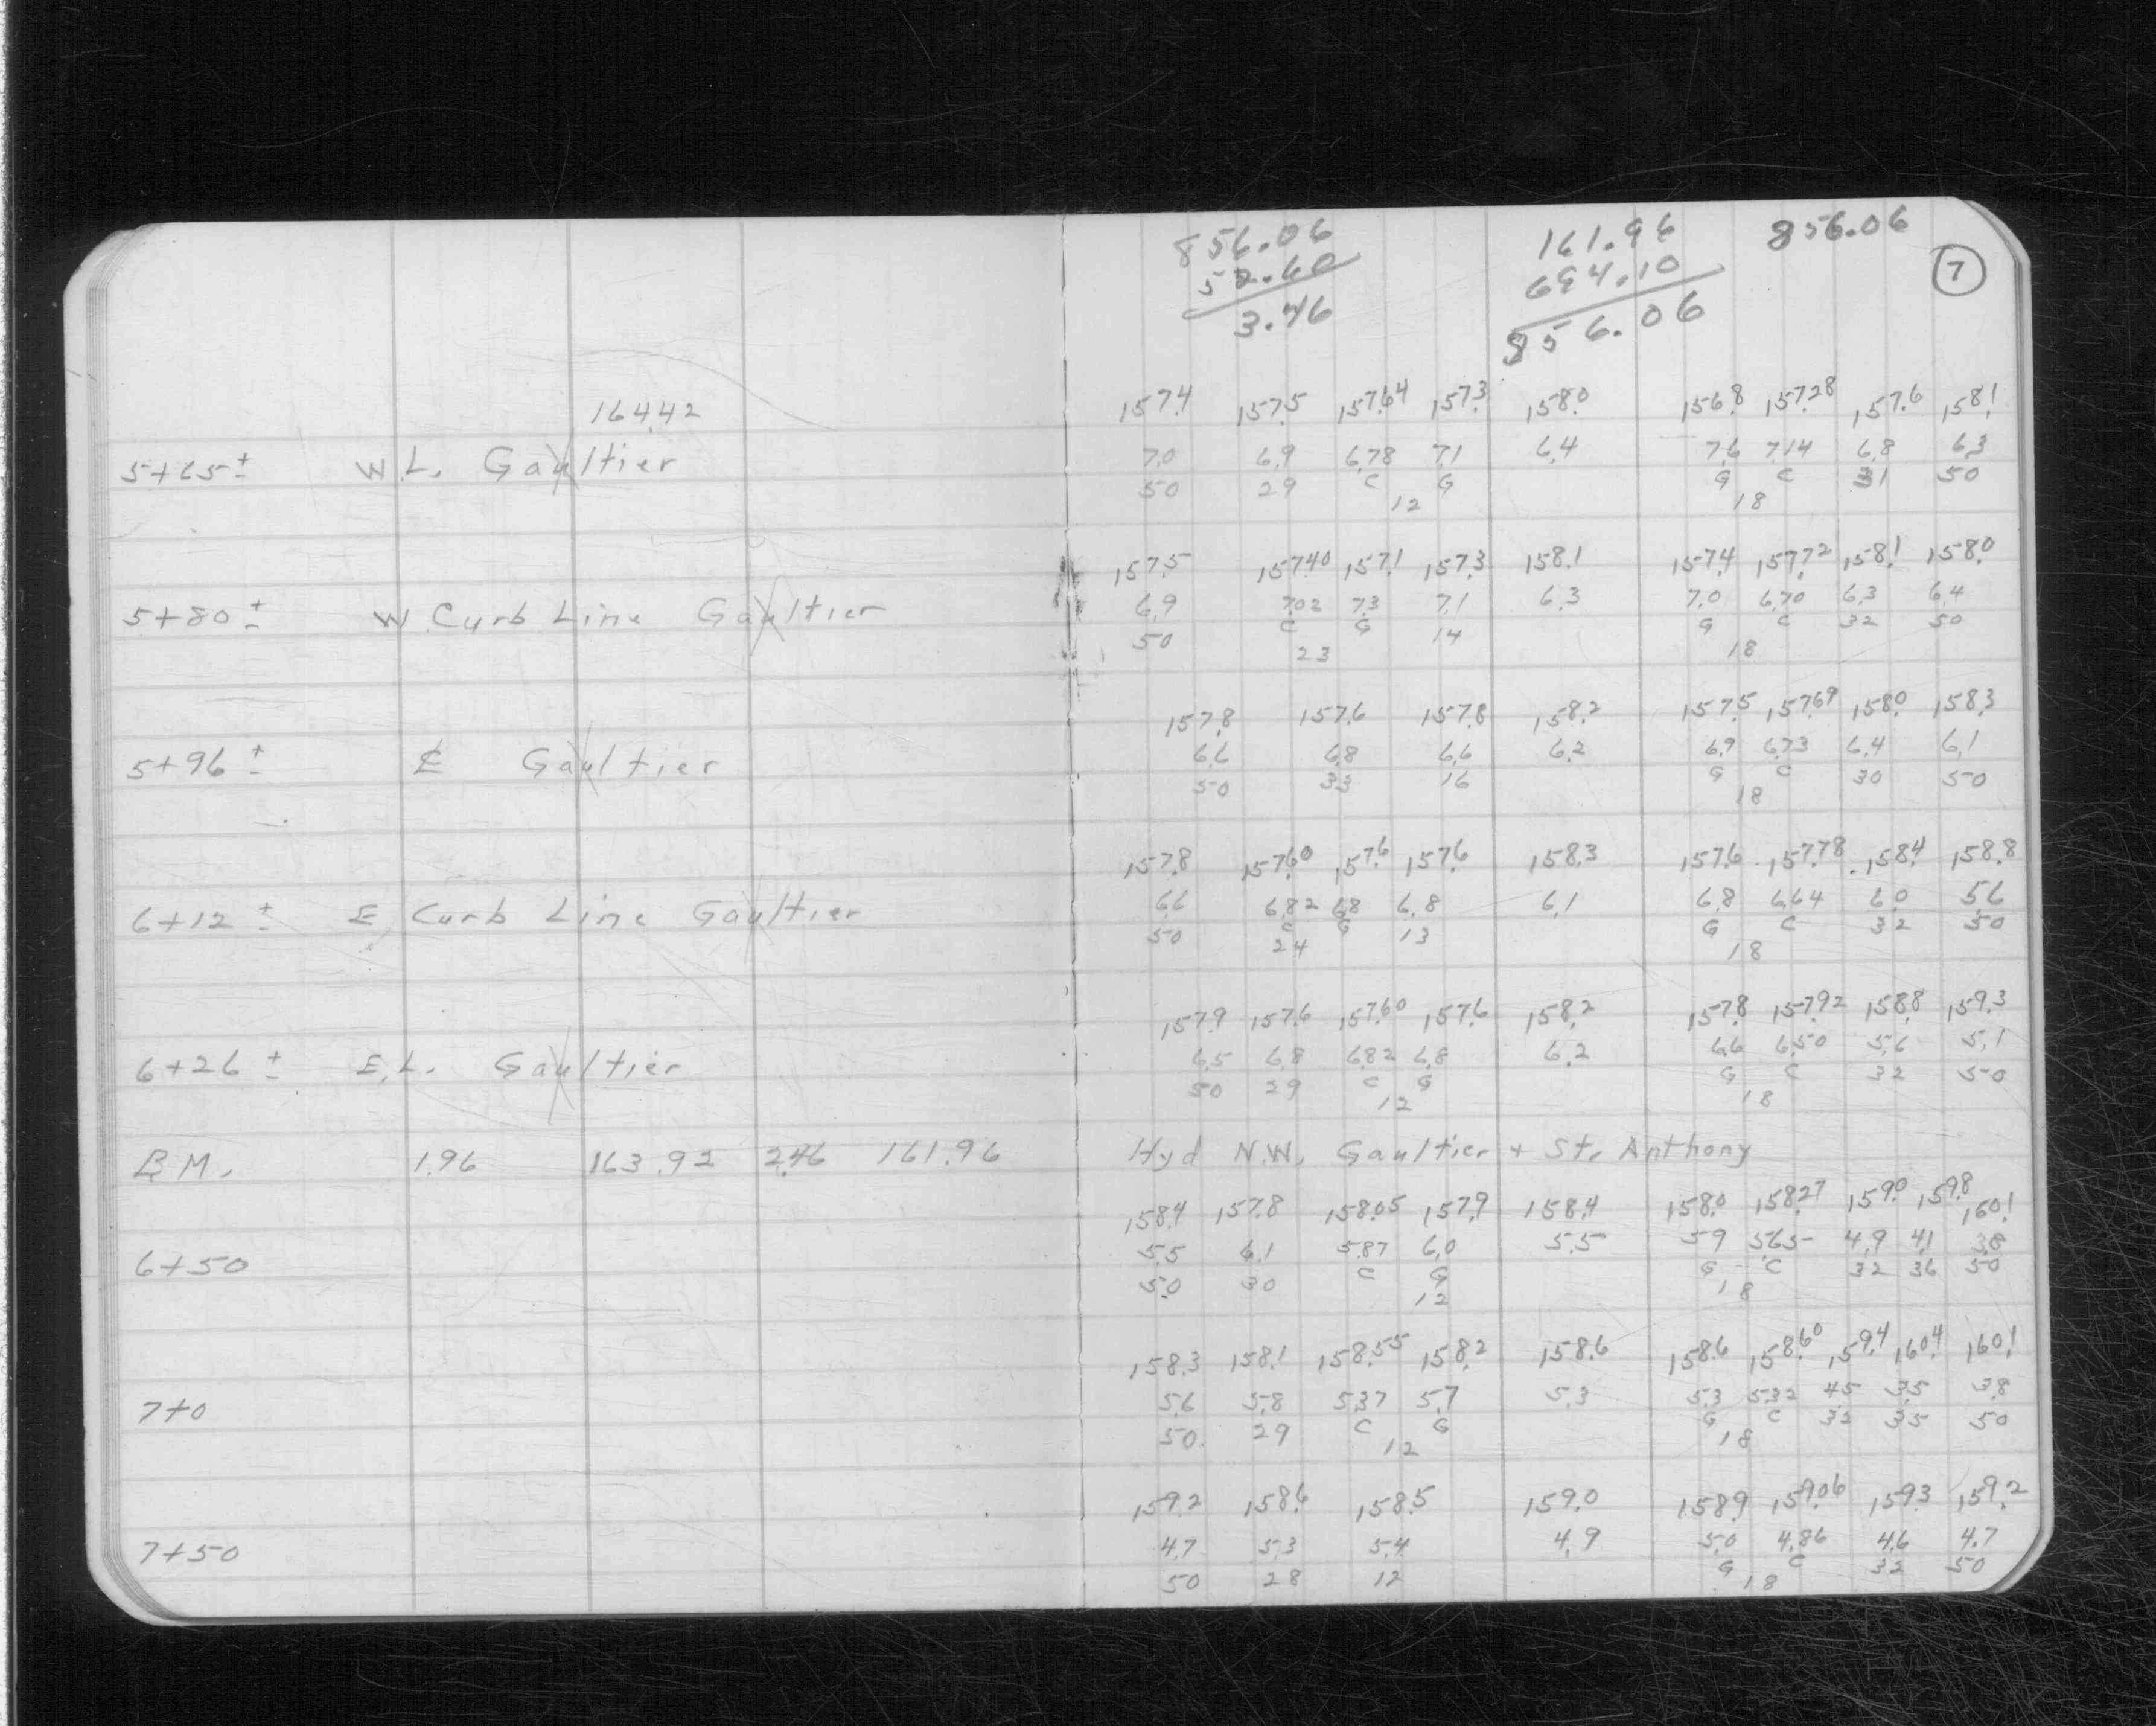 856.06 161.96 856.06
52.60 694.10 7
3.46 856.06
164.42 157.4 157.5 157.64 157.3 158.0 156.8 157.28 157.6 158.1
5+65± W.L. Gaultier 7.0 6.9 6.78 7.1 6.4 7.6 7.14 6.8 6.3
50 29 C G G C 31 50
12 18
157.5 157.40 157.1 157.3 158.1 157.4 157.72 158.1 158.0
5+80± W Curb Line Gaultier 6.9 7.02 7.3 7.1 6.3 7.0 6.70 6.3 6.4
50 C G 14 G C 32 50
23 18
157.8 157.6 157.8 158.2 157.5 157.69 158.0 158.3
5+96± ℄ Gaultier 6.6 6.8 6.6 6.2 6.9 6.73 6.4 6.1
50 33 16 G C 30 50
18
157.8 157.60 157.6 157.6 158.3 157.6 157.78 158.4 158.8
6+12± E Curb Line Gaultier 6.6 6.82 6.8 6.8 6.1 6.8 6.64 6.0 5.6
50 C G 13 G C 32 50
24 18
157.9 157.6 157.60 157.6 158.2 157.8 157.92 158.8 159.3
6+26± E.L. Gaultier 6.5 6.8 6.82 6.8 6.2 6.6 6.50 5.6 5.1
50 29 C G G C 32 50
12 18
B.M. 1.96 163.92 2.46 161.96 Hyd N.W. Gaultier + St. Anthony
158.4 157.8 158.05 157.9 158.4 158.0 158.27 159.0 159.8 160.1
6+50 5.5 6.1 5.87 6.0 5.5 5.9 5.65 4.9 4.1 3.8
50 30 C G G C 32 36 50
12 18
158.3 158.1 158.55 158.2 158.6 158.6 158.60 159.4 160.4 160.1
7+0 5.6 5.8 5.37 5.7 5.3 5.3 5.32 4.5 3.5 3.8
50 29 C G G C 32 35 50
12 18
159.2 158.6 158.5 159.0 158.9 159.06 159.3 159.2
7+50 4.7 5.3 5.4 4.9 5.0 4.86 4.6 4.7
50 28 12 G C 32 50
18